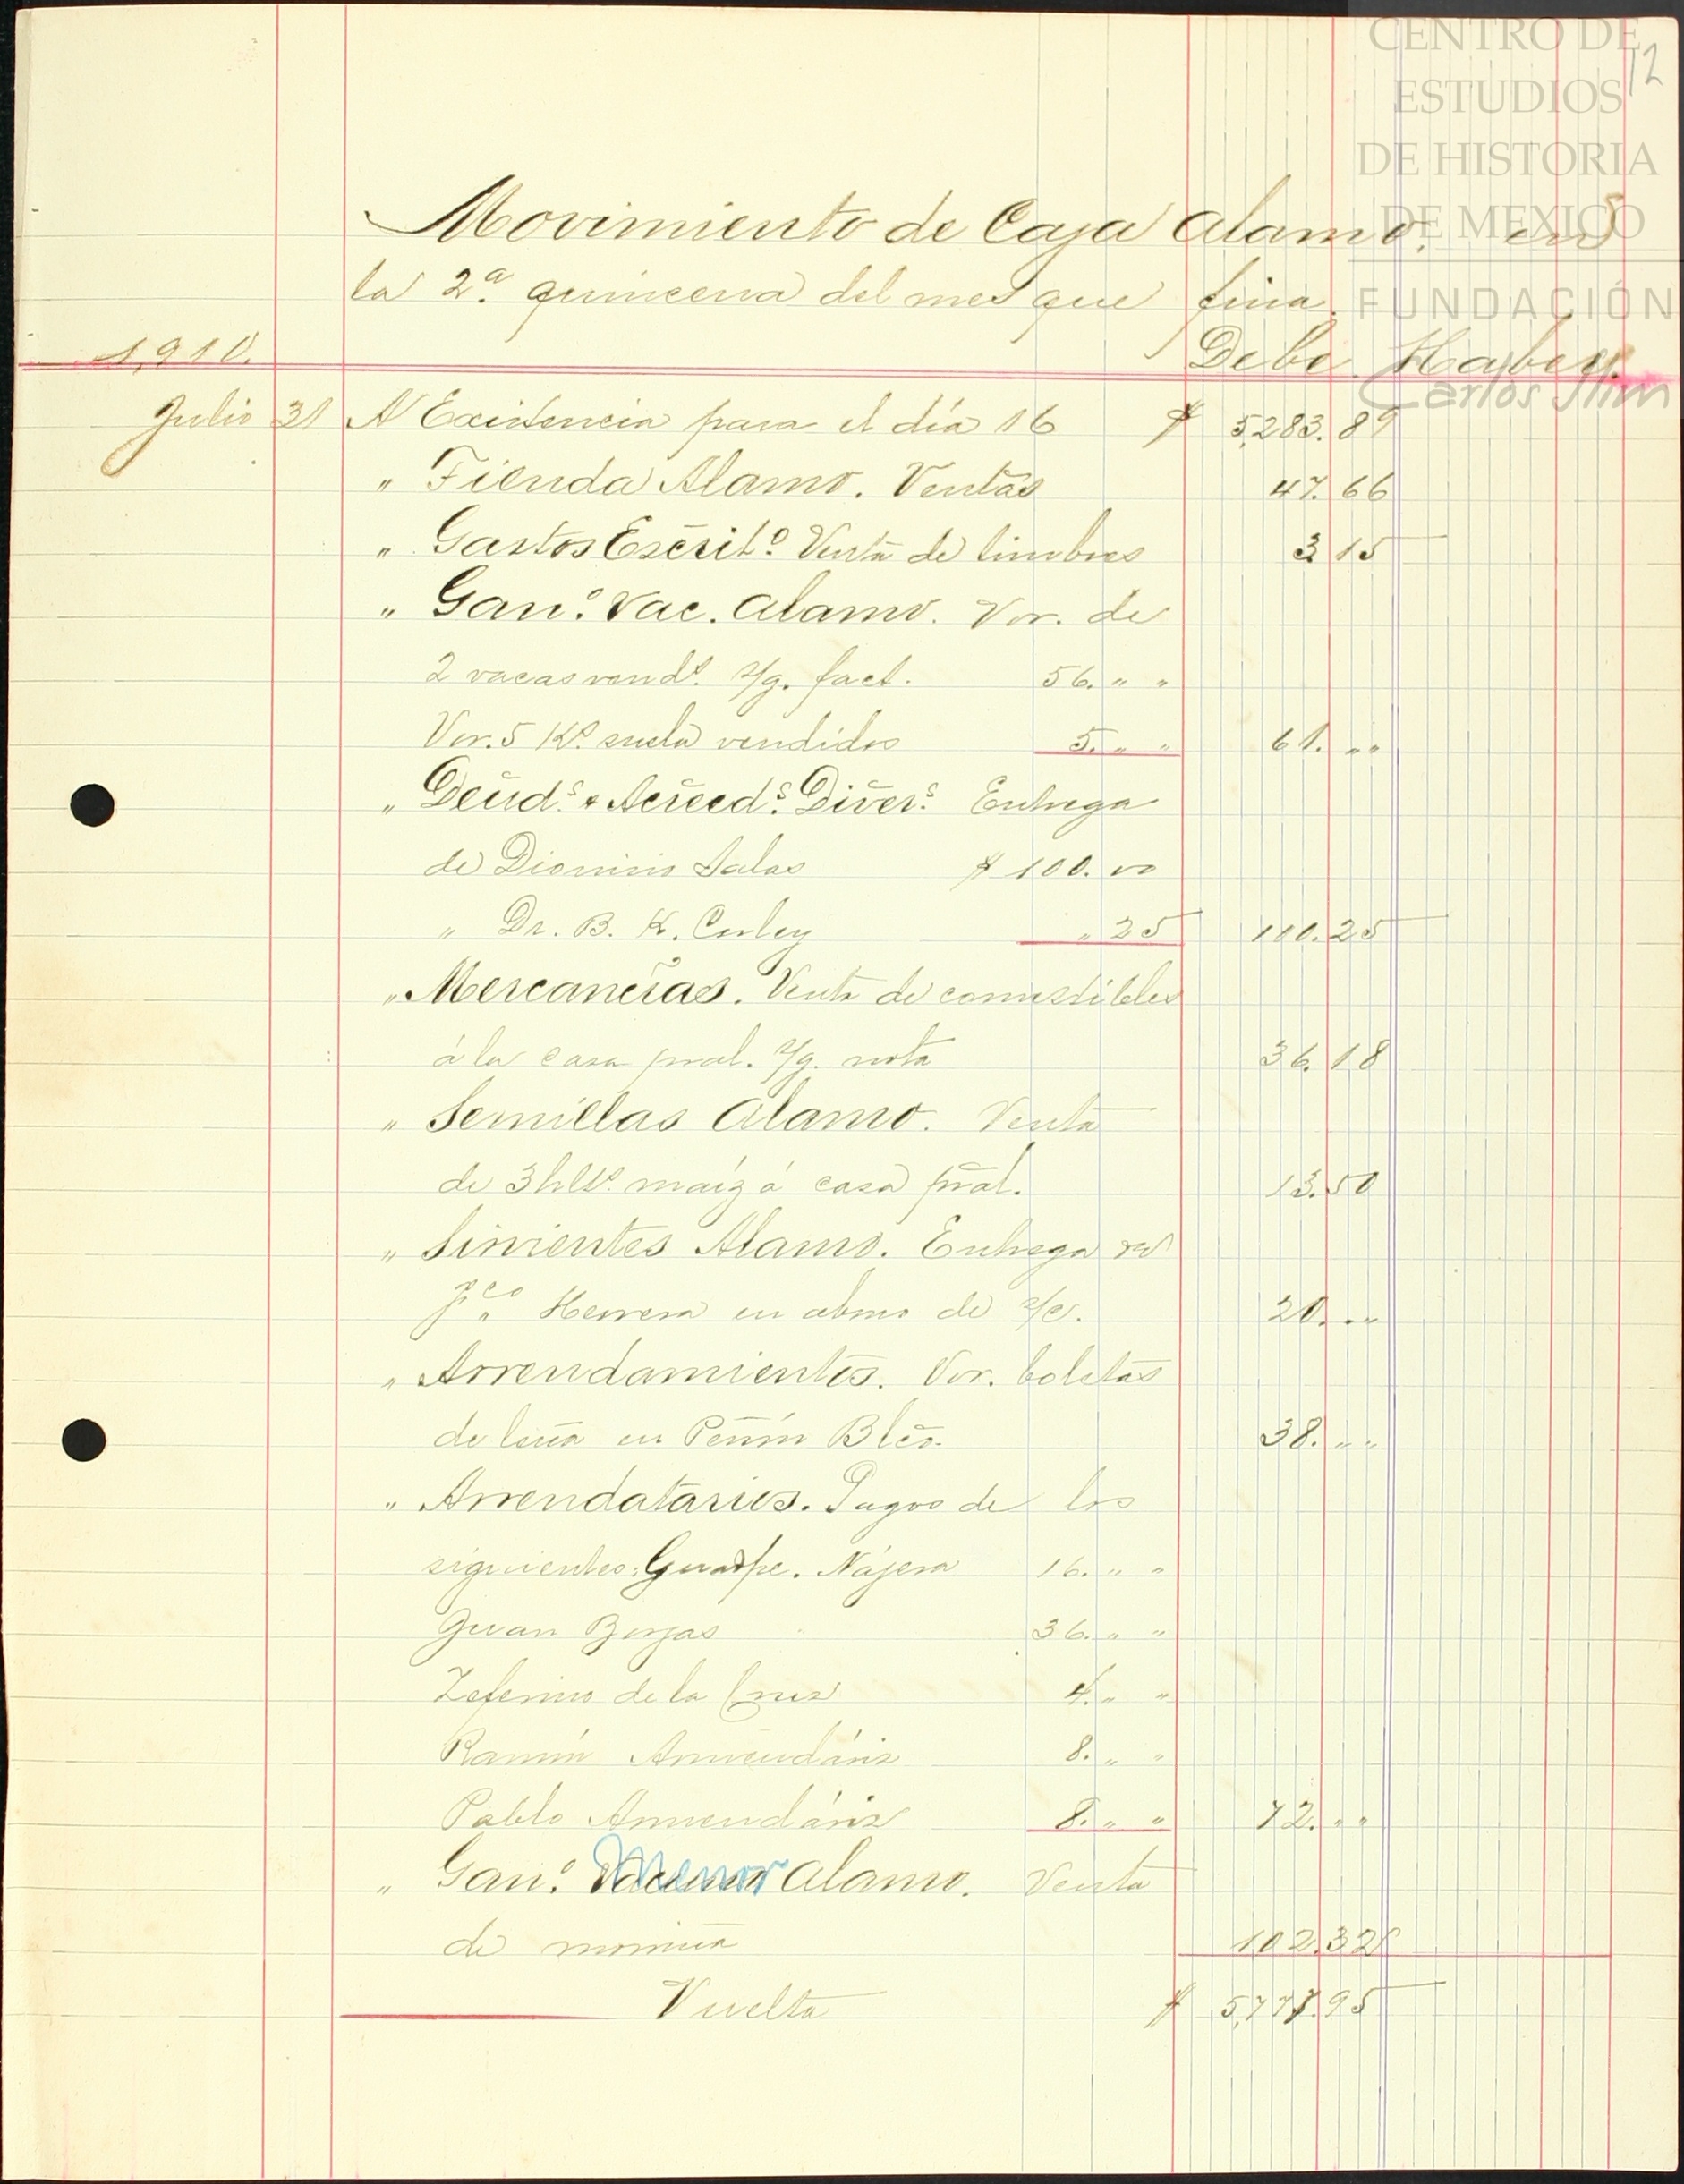 CENTRO DE
ESTUDIOS
DE HISTORIA
DE MEXICO
FUNDACIÓN
Carlos Slim
12
Movimiento de Caja Alamo. en
la 2ª quincena del mes que fina.
1,910. Debe Haber.
Julio 31 A Existencia para el día 16 $ 5,283.89
" Tienda Alamo. Ventas 47.66
" Gastos Escritº Venta de timbres 3 15
" Ganº. Vac. Alamo. Vor. de
2 vacas vendˢ. s/g. fact. 56. " "
Vor. 5 Kˢ. suela vendidos 5. " " 61. " "
" Deudˢ. & Acreedˢ. Diverˢ. Entrega
de Dionisio Salas $ 100.00
" Dr. B. K. Corley " 25 100.25
" Mercancías. Venta de comestibles
á la casa pral. s/g. nota 36.18
" Semillas Alamo. Venta
de 3 hltˢ. maíz á casa pral. 13.50
" Sirvientes Alamo. Entrega
Fco Herrera en abono de s/c. 20. " "
" Arrendamientos. Vor. boletas
de leña en Peñón Blco. 38. " "
" Arrendatarios. Pagos de los
siguientes: Guadpe. Nájera 16. " "
Juan Borjas 36. " "
Zeferino de la Cruz 4. " "
Ramón Armendáriz 8. " "
Pablo Armendáriz 8. " " 72. " "
" Ganº. Menor Alamo. Venta
de 102.32
Vuelta $ 5,777.95